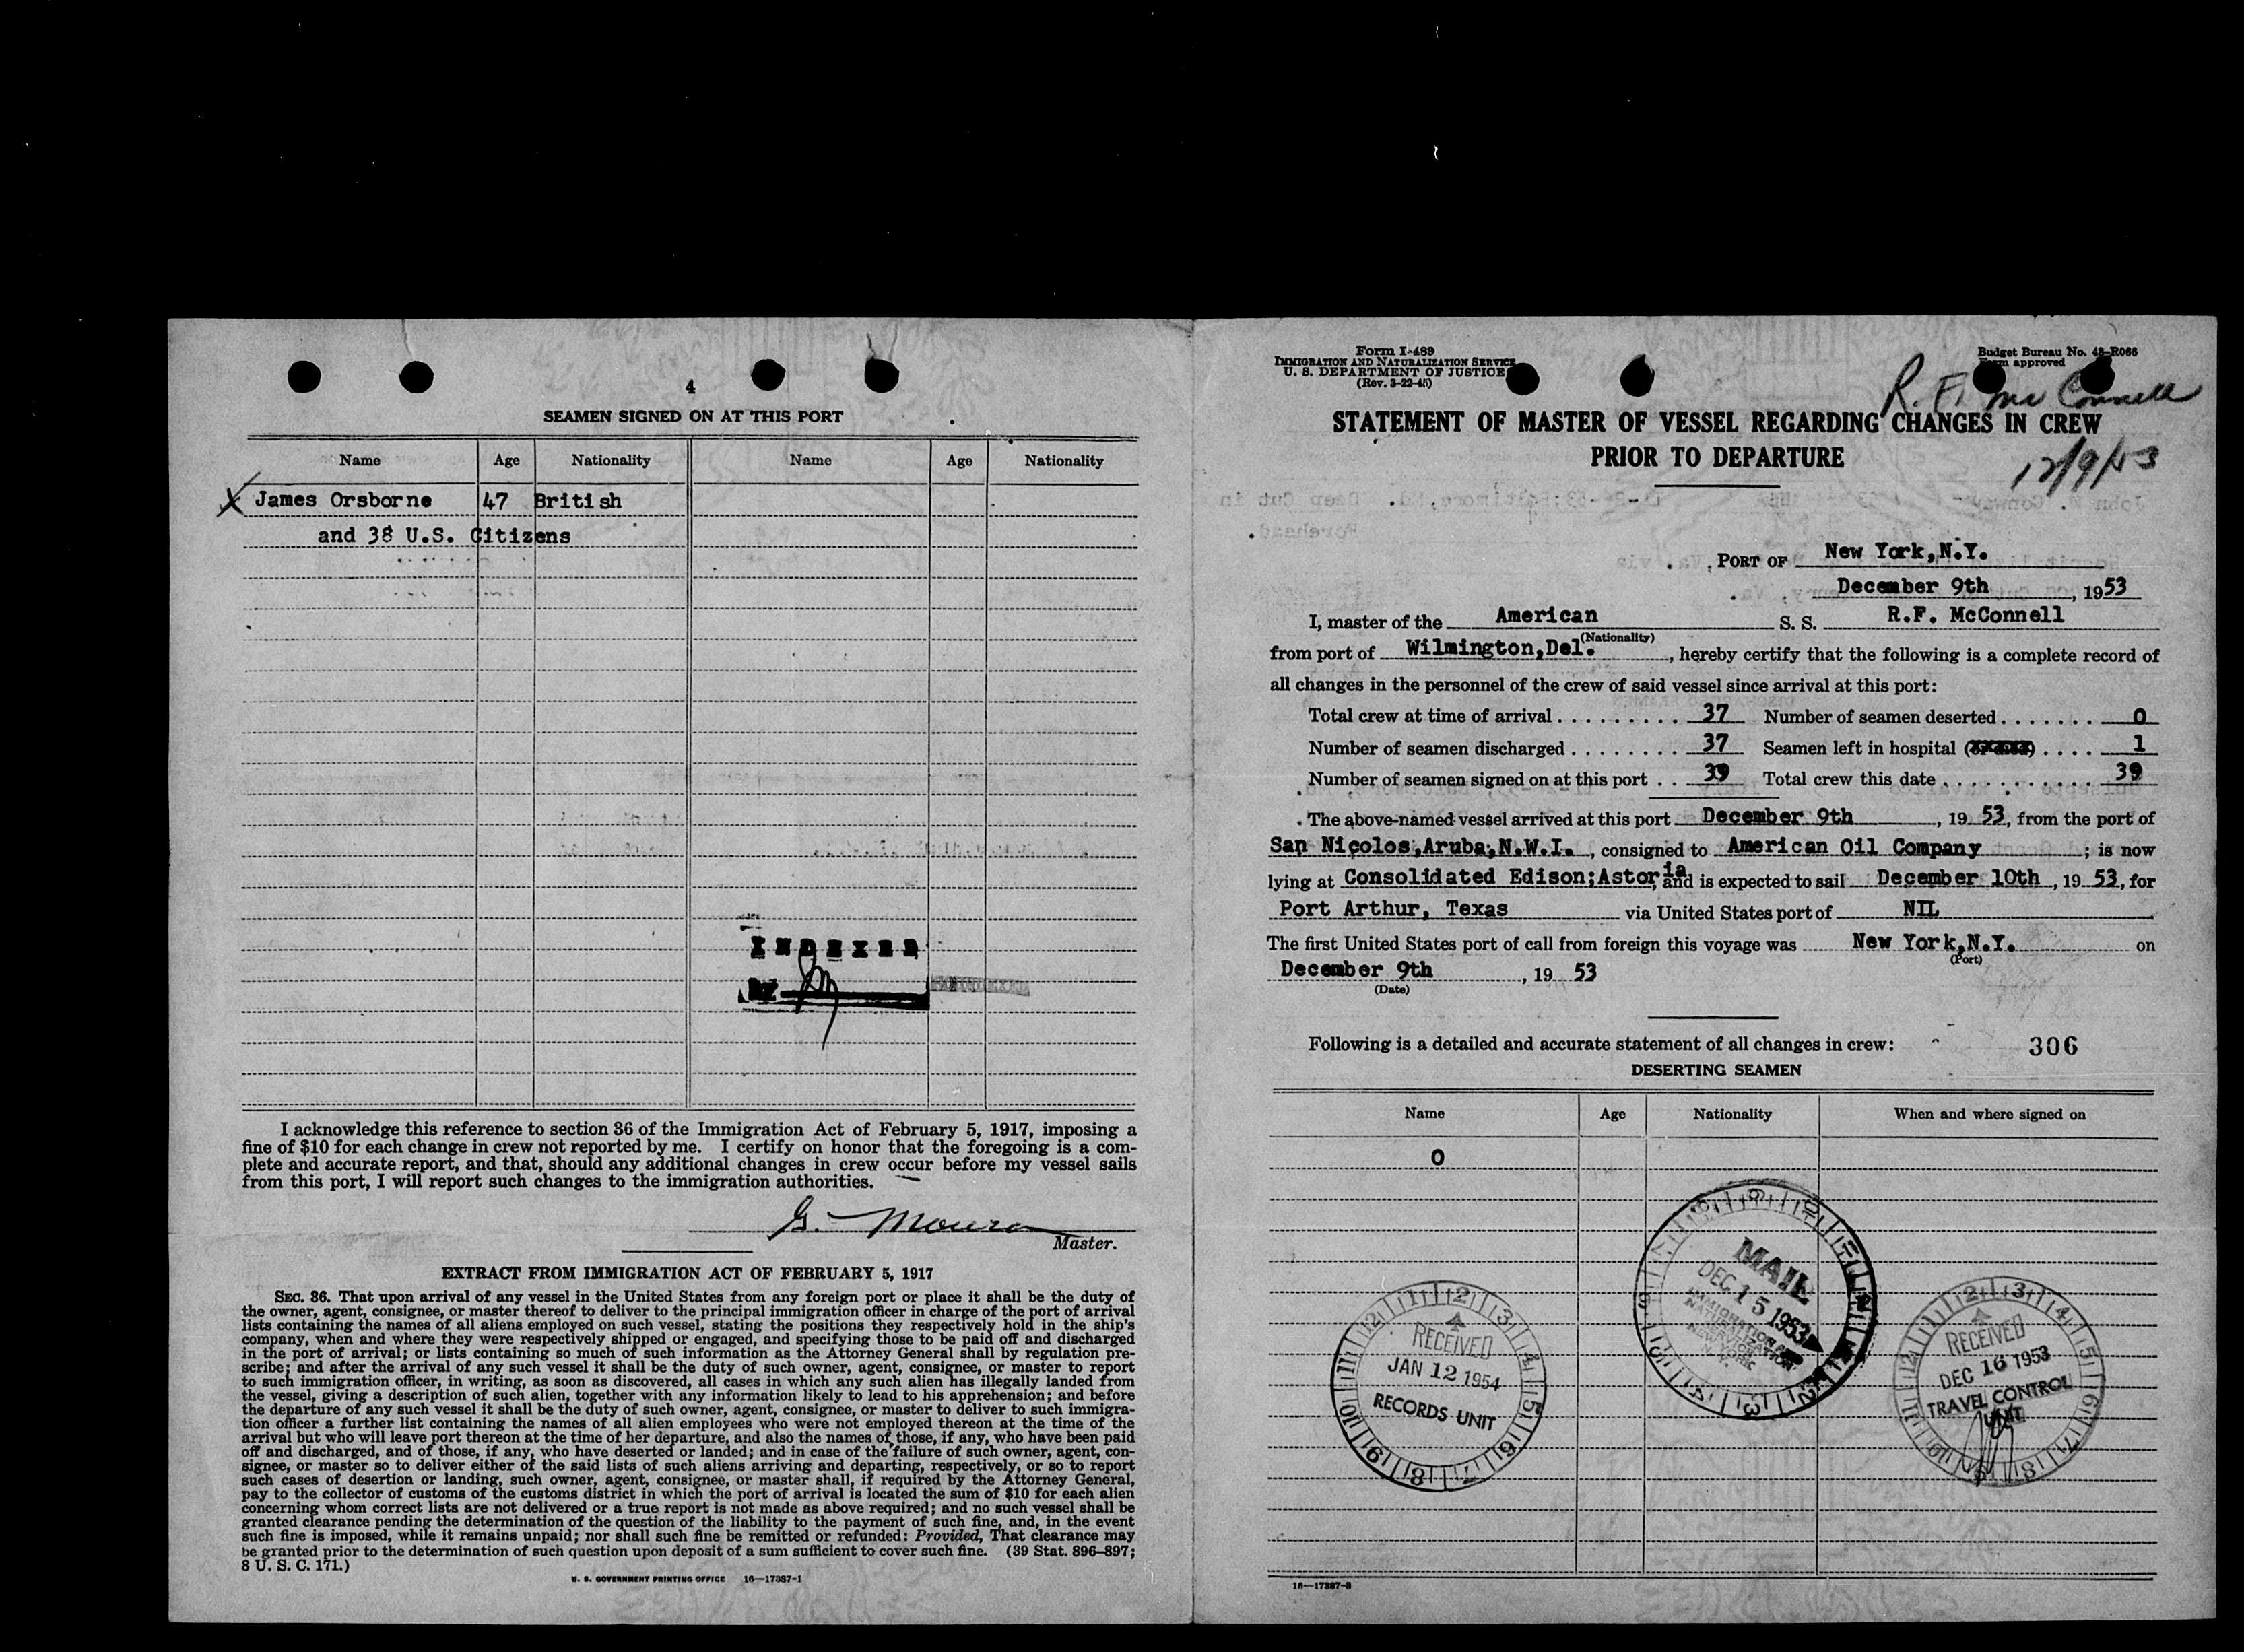 4
SEAMEN SIGNED ON AT THIS PORT
Name Age Nationality Name Age Nationality
X James Orsborne 47 British
and 38 U.S. Citizens
INDEXED
BY
I acknowledge this reference to section 36 of the Immigration Act of February 5, 1917, imposing a
fine of $10 for each change in crew not reported by me. I certify on honor that the foregoing is a com-
plete and accurate report, and that, should any additional changes in crew occur before my vessel sails
from this port, I will report such changes to the immigration authorities.
G. Moura
Master.
EXTRACT FROM IMMIGRATION ACT OF FEBRUARY 5, 1917
SEC. 36. That upon arrival of any vessel in the United States from any foreign port or place it shall be the duty of
the owner, agent, consignee, or master thereof to deliver to the principal immigration officer in charge of the port of arrival
lists containing the names of all aliens employed on such vessel, stating the positions they respectively hold in the ship's
company, when and where they were respectively shipped or engaged, and specifying those to be paid off and discharged
in the port of arrival; or lists containing so much of such information as the Attorney General shall by regulation pre-
scribe; and after the arrival of any such vessel it shall be the duty of such owner, agent, consignee, or master to report
to such immigration officer, in writing, as soon as discovered, all cases in which any such alien has illegally landed from
the vessel, giving a description of such alien, together with any information likely to lead to his apprehension; and before
the departure of any such vessel it shall be the duty of such owner, agent, consignee, or master to deliver to such immigra-
tion officer a further list containing the names of all alien employees who were not employed thereon at the time of the
arrival but who will leave port thereon at the time of her departure, and also the names of those, if any, who have been paid
off and discharged, and of those, if any, who have deserted or landed; and in case of the failure of such owner, agent, con-
signee, or master so to deliver either of the said lists of such aliens arriving and departing, respectively, or so to report
such cases of desertion or landing, such owner, agent, consignee, or master shall, if required by the Attorney General,
pay to the collector of customs of the customs district in which the port of arrival is located the sum of $10 for each alien
concerning whom correct lists are not delivered or a true report is not made as above required; and no such vessel shall be
granted clearance pending the determination of the question of the liability to the payment of such fine, and, in the event
such fine is imposed, while it remains unpaid; nor shall such fine be remitted or refunded: Provided, That clearance may
be granted prior to the determination of such question upon deposit of a sum sufficient to cover such fine. (39 Stat. 896–897;
8 U. S. C. 171.)
U. S. GOVERNMENT PRINTING OFFICE 16—17387-1
Form I-489
IMMIGRATION AND NATURALIZATION SERVICE
U. S. DEPARTMENT OF JUSTICE
(Rev. 3-22-45)
Budget Bureau No. 43-R066
Form approved
R. F. McConnell
STATEMENT OF MASTER OF VESSEL REGARDING CHANGES IN CREW
PRIOR TO DEPARTURE
12/9/53
PORT OF New York,N.Y.
December 9th, 1953
I, master of the American S. S. R.F. McConnell
(Nationality)
from port of Wilmington,Del., hereby certify that the following is a complete record of
all changes in the personnel of the crew of said vessel since arrival at this port:
Total crew at time of arrival . . . . . . . . . 37 Number of seamen deserted . . . . . . . 0
Number of seamen discharged . . . . . . . . 37 Seamen left in hospital . . . . 1
Number of seamen signed on at this port . . 39 Total crew this date . . . . . . . . . . . 39
The above-named vessel arrived at this port December 9th, 19 53, from the port of
San Nicolos,Aruba,N.W.I., consigned to American Oil Company; is now
lying at Consolidated Edison;Astoria and is expected to sail December 10th, 19 53, for
Port Arthur, Texas via United States port of NIL
The first United States port of call from foreign this voyage was New York,N.Y. on
(Port)
December 9th, 19 53
(Date)
Following is a detailed and accurate statement of all changes in crew: 306
DESERTING SEAMEN
Name Age Nationality When and where signed on
0
MAIL
DEC 15 1953
IMMIGRATION &
NATURALIZATION
SERVICE
NEW YORK
N. Y.
RECEIVED
JAN 12 1954
RECORDS UNIT
RECEIVED
DEC 16 1953
TRAVEL CONTROL
UNIT
16—17387-3